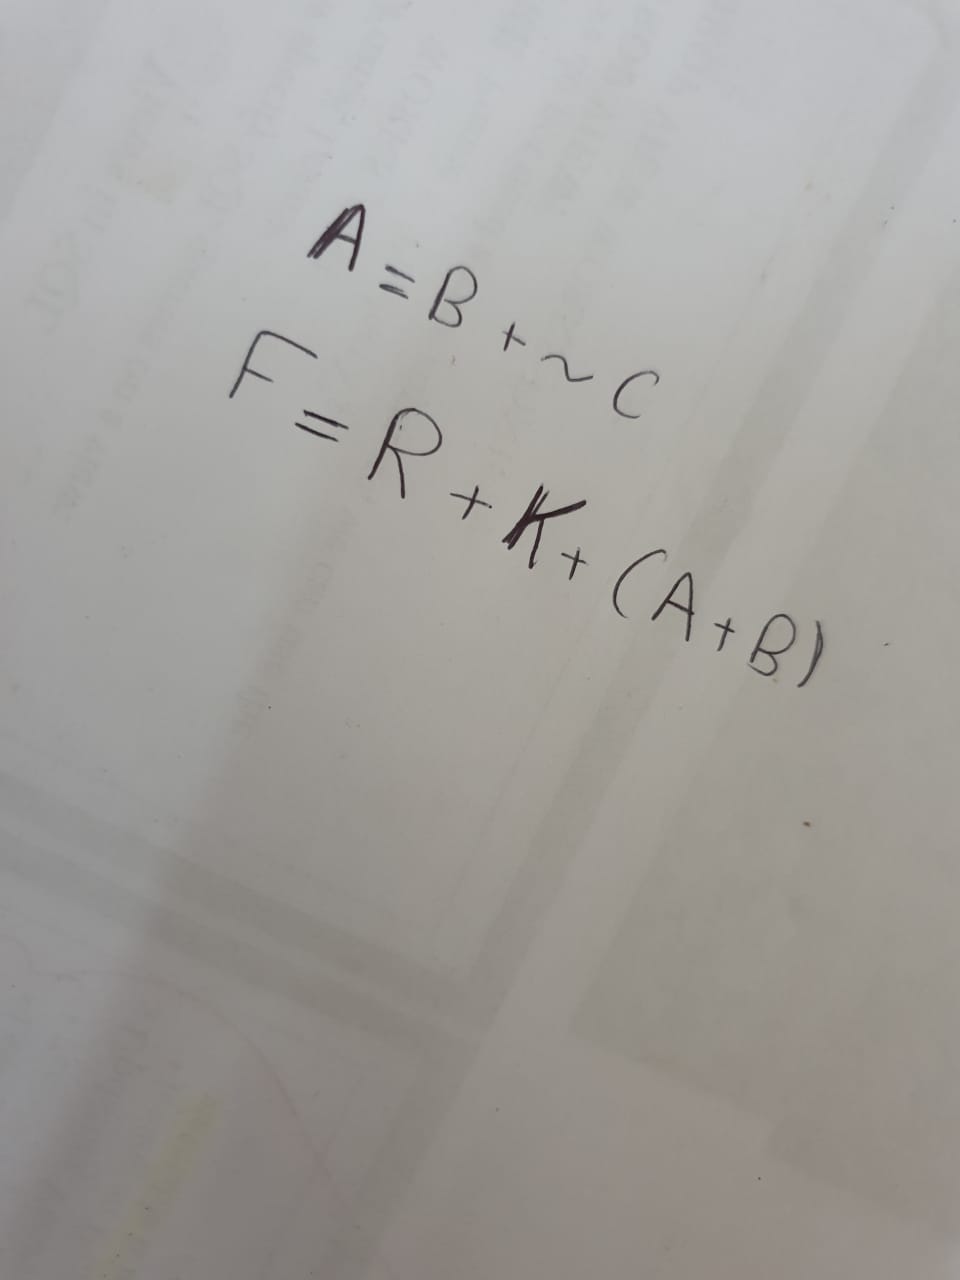 A = B + ~ C
F = R + K + (A + B)